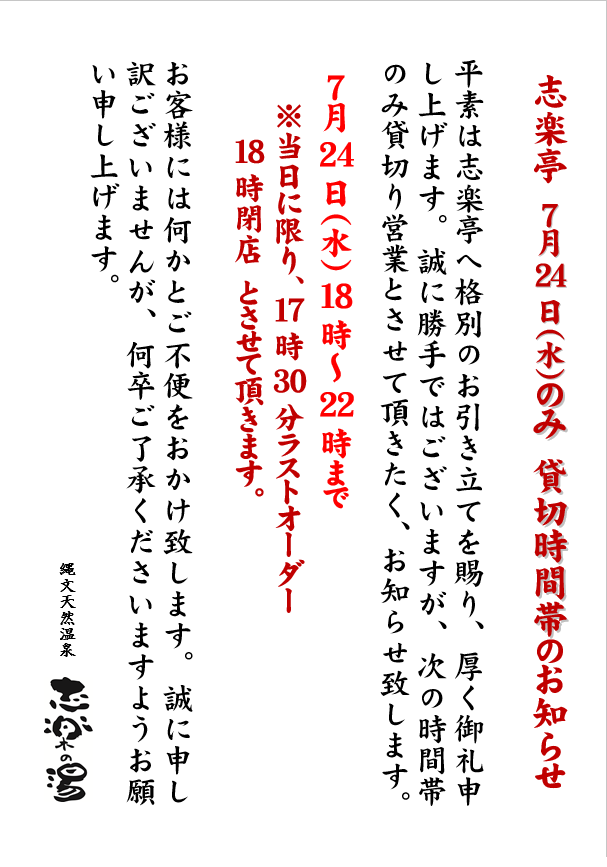 志楽亭 7月24日(水)のみ 貸切時間帯のお知らせ
平素は志楽亭へ格別のお引き立てを賜り、厚く御礼申
し上げます。誠に勝手ではございますが、次の時間帯
のみ貸切り営業とさせて頂きたく、お知らせ致します。
7月24日(水)18時～22時まで
※当日に限り、17時30分ラストオーダー
18時閉店 とさせて頂きます。
お客様には何かとご不便をおかけ致します。誠に申し
訳ございませんが、何卒ご了承くださいますようお願
い申し上げます。
縄文天然温泉
志楽の湯